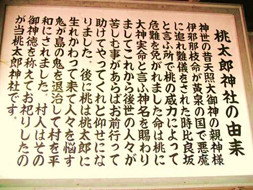 桃太郎神社の由来
神世の昔天照大御の親神様
伊邪那岐命が黄泉の国で悪魔
に追われ難儀をされた時比良坂
と言ふ所で桃の威力によって
危難を免がれました命は桃に
大神実命と言ふ神名を賜わり
ましてこれから後世の人々が
苦しむ事があらばお前行って
助けてやってくれと仰せにな
りました、後に桃は桃太郎に
生れかわって来て人々を悩す
鬼が島の鬼を退治して村を平
和にされました、村人はその
御神徳を称えてお祀りしたの
が当桃太郎神社です。